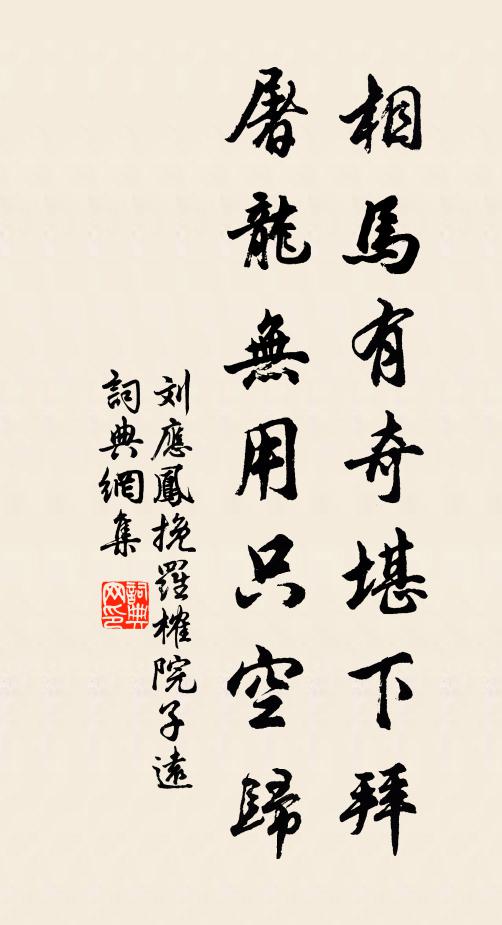 相馬有奇堪下拜
屠龍無用只空歸
刘應鳳挽羅榷院子遠
詞典網集
詞典網印